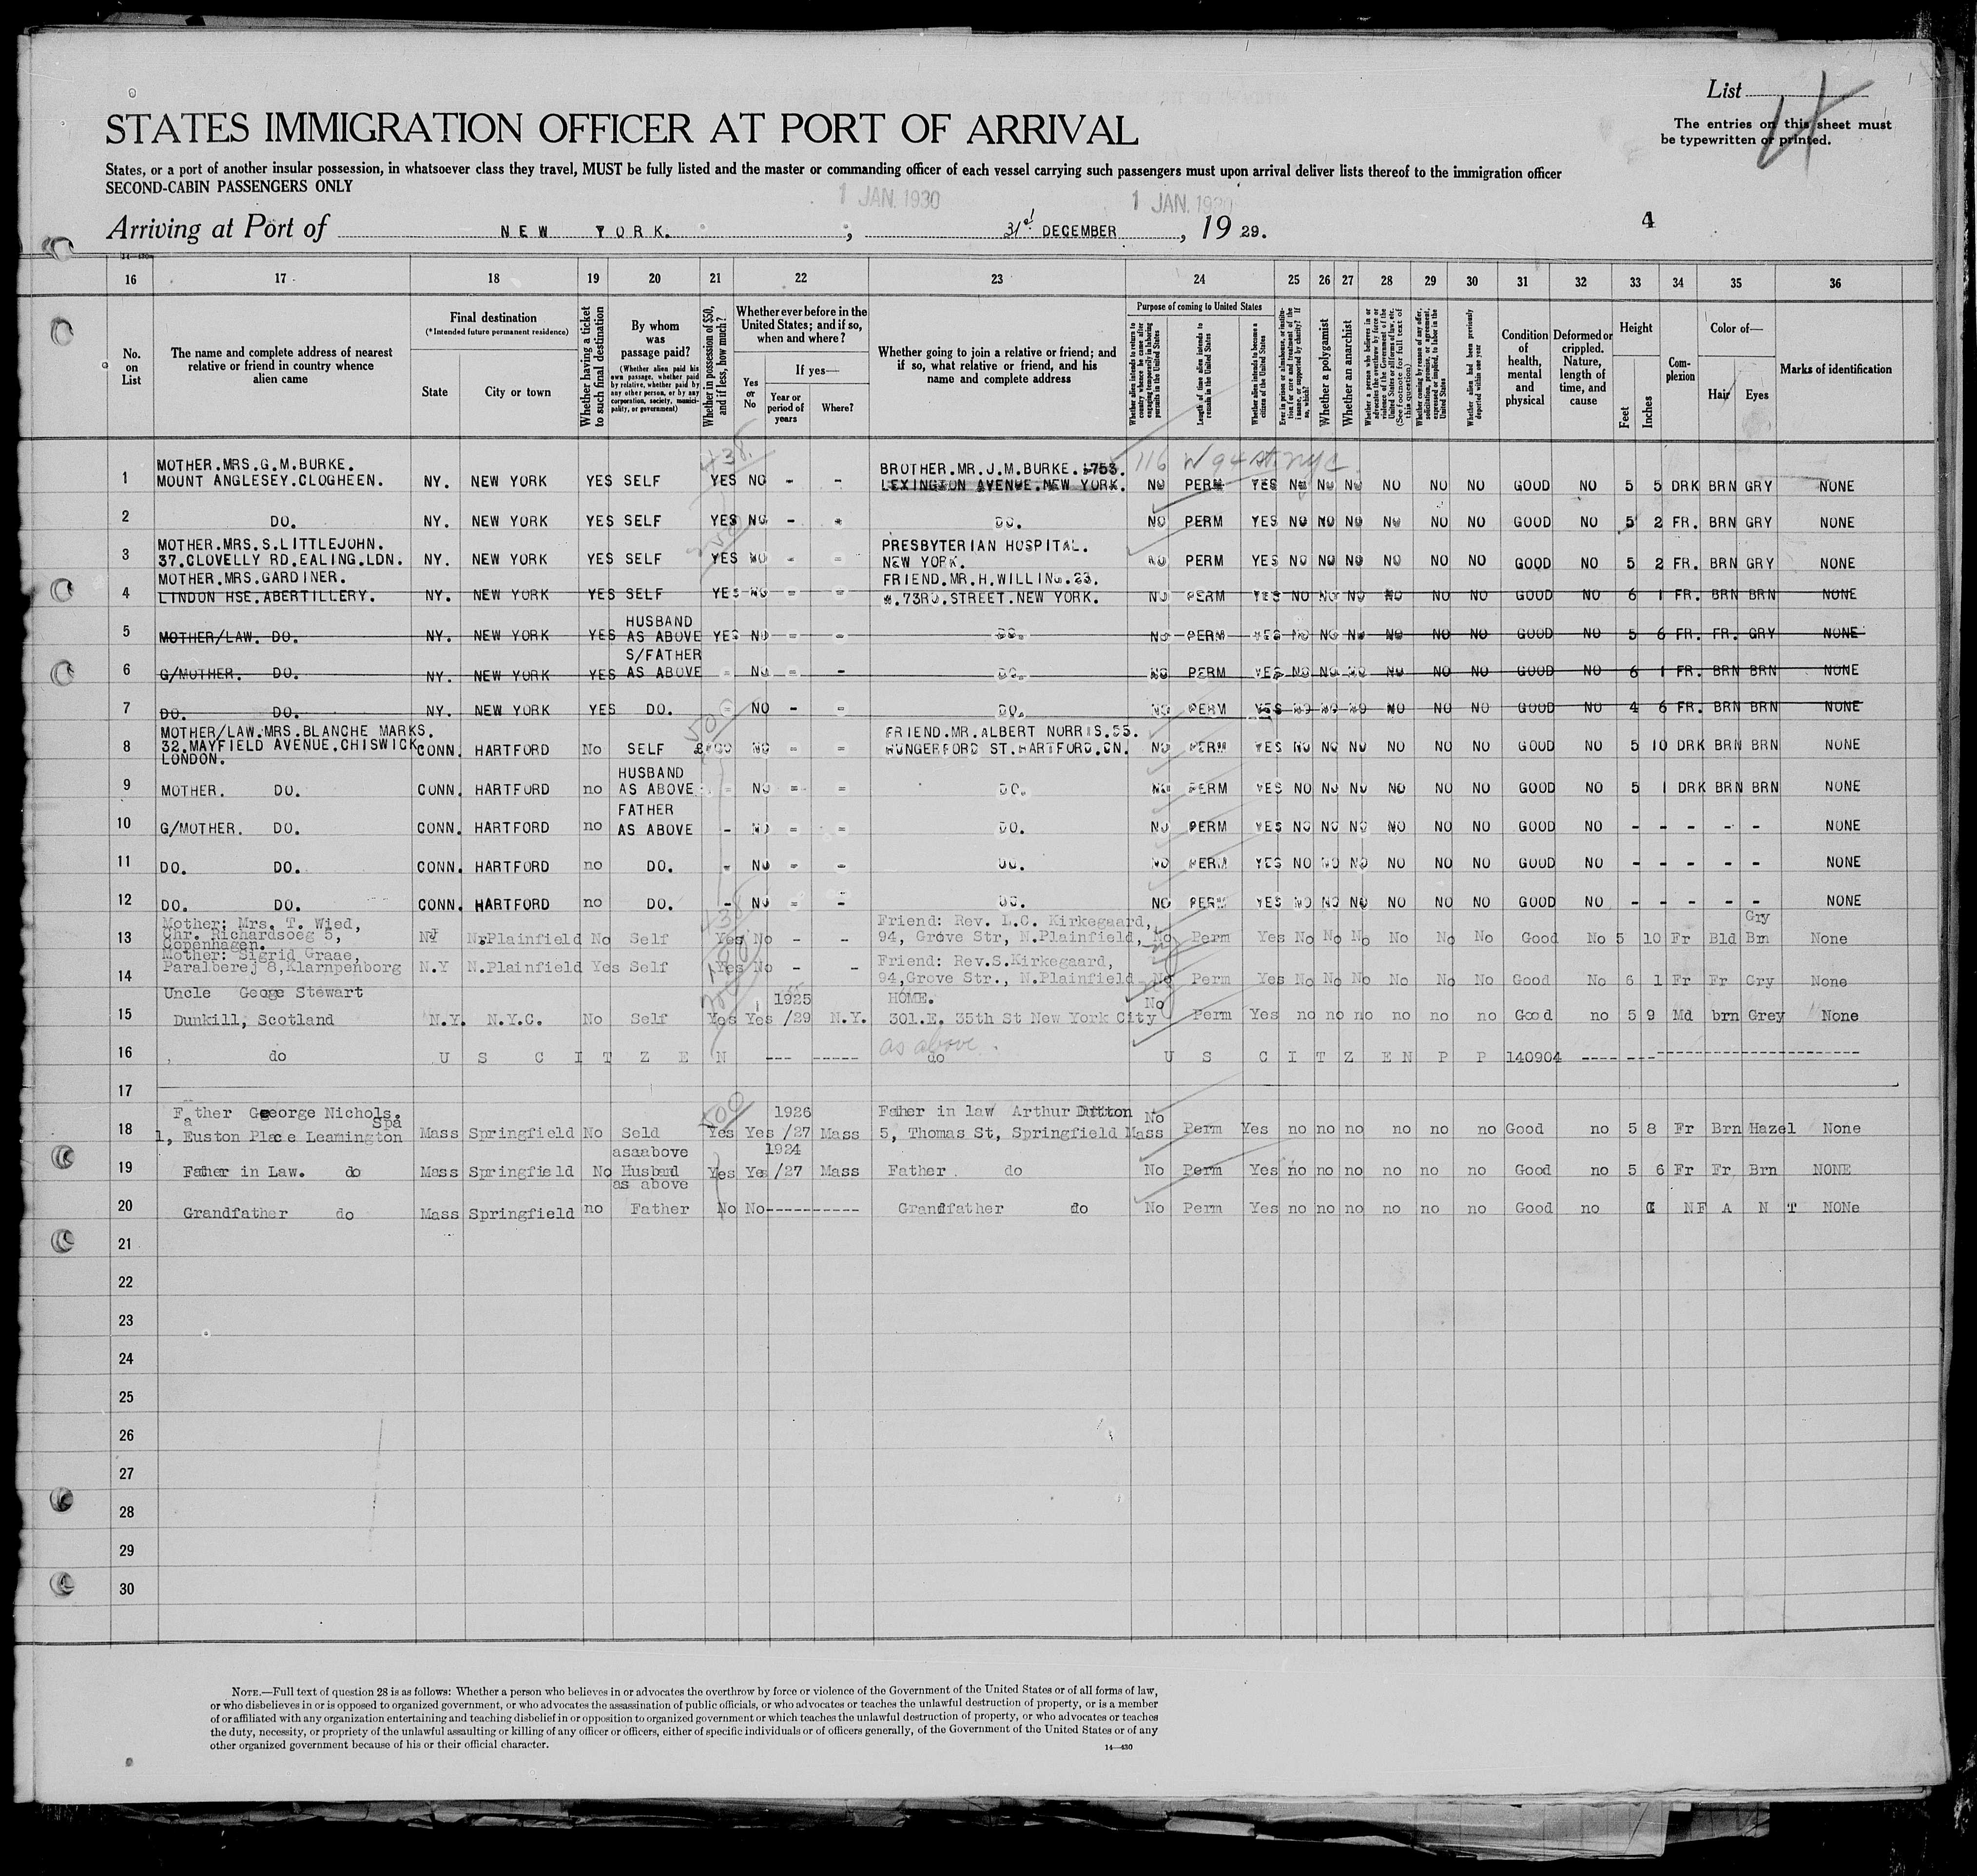 List
4
The entries on this sheet must
be typewritten or printed.
STATES IMMIGRATION OFFICER AT PORT OF ARRIVAL
States, or a port of another insular possession, in whatsoever class they travel, MUST be fully listed and the master or commanding officer of each vessel carrying such passengers must upon arrival deliver lists thereof to the immigration officer
SECOND-CABIN PASSENGERS ONLY
1 JAN. 1930 1 JAN. 1930
Arriving at Port of NEW YORK. , 31st DECEMBER , 19 29.
4
16 17 18 19 20 21 22 23 24 25 26 27 28 29 30 31 32 33 34 35 36
No. on List
The name and complete address of nearest relative or friend in country whence alien came
Final destination
(*Intended future permanent residence)
State
City or town
Whether having a ticket to such final destination
By whom was passage paid?
(Whether alien paid his own passage, whether paid by relative, whether paid by any other person, or by any corporation, society, municipality, or government)
Whether in possession of $50, and if less, how much?
Whether ever before in the United States; and if so, when and where?
Yes or No
If yes—
Year or period of years
Where?
Whether going to join a relative or friend; and if so, what relative or friend, and his name and complete address
Purpose of coming to United States
Whether alien intends to return to country whence he came after engaging temporarily in laboring pursuits in the United States
Length of time alien intends to remain in the United States
Whether alien intends to become a citizen of the United States
Ever in prison or almshouse, or institution for care and treatment of the insane, or supported by charity? If so, which?
Whether a polygamist
Whether an anarchist
Whether a person who believes in or advocates the overthrow by force or violence of the Government of the United States or all forms of law, etc. (See footnote for full text of this question)
Whether coming by reason of any offer, solicitation, promise, or agreement, expressed or implied, to labor in the United States
Whether alien had been previously deported within one year
Condition of health, mental and physical
Deformed or crippled. Nature, length of time, and cause
Height
Feet
Inches
Complexion
Color of—
Hair
Eyes
Marks of identification
MOTHER.MRS.G.M.BURKE. BROTHER.MR.J.M.BURKE.1753. 116 W 94 St. nyc.
1 MOUNT ANGLESEY.CLOGHEEN. NY. NEW YORK YES SELF YES NO - - LEXINGTON AVENUE.NEW YORK. NO PERM YES NO NO NO NO NO NO GOOD NO 5 5 DRK BRN GRY NONE
2 DO. NY. NEW YORK YES SELF YES NO - - DO. NO PERM YES NO NO NO NO NO NO GOOD NO 5 2 FR. BRN GRY NONE
MOTHER.MRS.S.LITTLEJOHN. PRESBYTERIAN HOSPITAL.
3 37.CLOVELLY RD.EALING.LDN. NY. NEW YORK YES SELF YES NO - = NEW YORK. NO PERM YES NO NO NO NO NO NO GOOD NO 5 2 FR. BRN GRY NONE
MOTHER.MRS.GARDINER. FRIEND.MR.H.WILLING.23.
4 LINDON HSE.ABERTILLERY. NY. NEW YORK YES SELF YES NO = = W.73RD.STREET.NEW YORK. NO PERM YES NO NO NO NO NO NO GOOD NO 6 1 FR. BRN BRN NONE
HUSBAND
5 MOTHER/LAW. DO. NY. NEW YORK YES AS ABOVE YES NO = = DO. NO PERM YES NO NO NO NO NO NO GOOD NO 5 6 FR. FR. GRY NONE
S/FATHER
6 G/MOTHER. DO. NY. NEW YORK YES AS ABOVE = NO = - DO. NO PERM YES NO NO NO NO NO NO GOOD NO 6 1 FR. BRN BRN NONE
7 DO. DO. NY. NEW YORK YES DO. = NO - = DO. NO PERM YES NO NO NO NO NO NO GOOD NO 4 6 FR. BRN BRN NONE
MOTHER/LAW.MRS.BLANCHE MARKS. FRIEND.MR.ALBERT NORRIS.55.
8 32.MAYFIELD AVENUE.CHISWICK CONN. HARTFORD No SELF NO = = HUNGERFORD ST.HARTFORD.CN. NO PERM YES NO NO NO NO NO NO GOOD NO 5 10 DRK BRN BRN NONE
LONDON.
HUSBAND
9 MOTHER. DO. CONN. HARTFORD no AS ABOVE - NO = = DO. NO PERM YES NO NO NO NO NO NO GOOD NO 5 1 DRK BRN BRN NONE
FATHER
10 G/MOTHER. DO. CONN. HARTFORD no AS ABOVE - NO = = DO. NO PERM YES NO NO NO NO NO NO GOOD NO - - - - - NONE
11 DO. DO. CONN. HARTFORD no DO. - NO = - DO. NO PERM YES NO NO NO NO NO NO GOOD NO - - - - - NONE
12 DO. DO. CONN. HARTFORD no DO. - NO = = DO. NO PERM YES NO NO NO NO NO NO GOOD NO - - - - - NONE
Mother: Mrs. T. Wied, Friend: Rev. L.C. Kirkegaard, Gry
13 Chr. Richardsoeg 5, NJ N.Plainfield No Self Yes No - - 94, Grove Str, N.Plainfield, No Perm Yes No No No No No No Good No 5 10 Fr Bld Brn None
Copenhagen.
Mother: Sigrid Graae, Friend: Rev.S.Kirkegaard,
14 Paralberej 8,Klarnpenborg N.Y N.Plainfield Yes Self Yes No - - 94,Grove Str., N.Plainfield No Perm Yes No No No No No No Good No 6 1 Fr Fr Gry None
Uncle Geoge Stewart 1925 HOME. No
15 Dunkill, Scotland N.Y. N.Y.C. No Self Yes Yes /29 N.Y. 301.E. 35th St New York City Perm Yes no no no no no no Good no 5 9 Md brn Grey None
as above.
16 do U S C I T Z E N --- ----- do U S C I T Z E N P P 140904 ---- --- --------------------
17
Father Geeorge Nichols. 1926 Faher in law Arthur Dutton No
Spa
18 1, Euston Place Leamington Mass Springfield No Seld Yes Yes /27 Mass 5, Thomas St, Springfield Mass Perm Yes no no no no no no Good no 5 8 Fr Brn Hazel None
asaabove 1924
19 Father in Law. do Mass Springfield No Husband Yes Yes /27 Mass Father. do No Perm Yes no no no no no no Good no 5 6 Fr Fr Brn NONE
as above
20 Grandfather do Mass Springfield no Father No No----------- Grandfather do No Perm Yes no no no no no no Good no I NF A N T NONe
21
22
23
24
25
26
27
28
29
30
NOTE.—Full text of question 28 is as follows: Whether a person who believes in or advocates the overthrow by force or violence of the Government of the United States or of all forms of law,
or who disbelieves in or is opposed to organized government, or who advocates the assassination of public officials, or who advocates or teaches the unlawful destruction of property, or is a member
of or affiliated with any organization entertaining and teaching disbelief in or opposition to organized government or which teaches the unlawful destruction of property, or who advocates or teaches
the duty, necessity, or propriety of the unlawful assaulting or killing of any officer or officers, either of specific individuals or of officers generally, of the Government of the United States or of any
other organized government because of his or their official character.
14—430